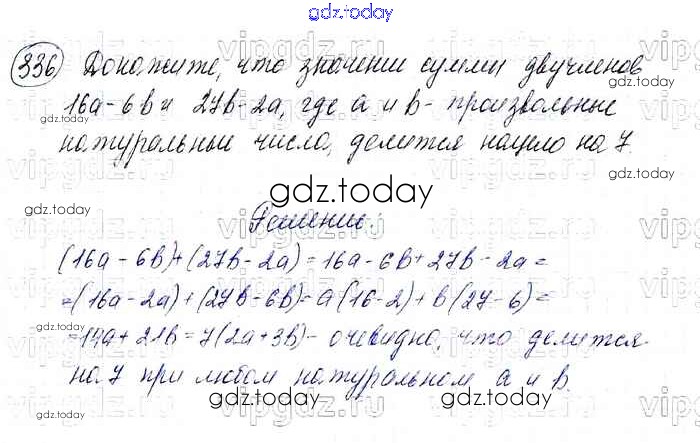 gdz.today
336 Докажите, что значении суммы двучленов
16a-6b и 27b-2a, где a и b- произвольные
натуральные числа, делится нацело на 7.
gdz.today
Решение:
(16a-6b)+(27b-2a)=16a-6b+27b-2a=
=(16a-2a)+(27b-6b)=a(16-2)+b(27-6)=
=14a+21b=7(2a+3b)- очевидно, что делится
на 7 при любом натуральном a и b.
gdz.today